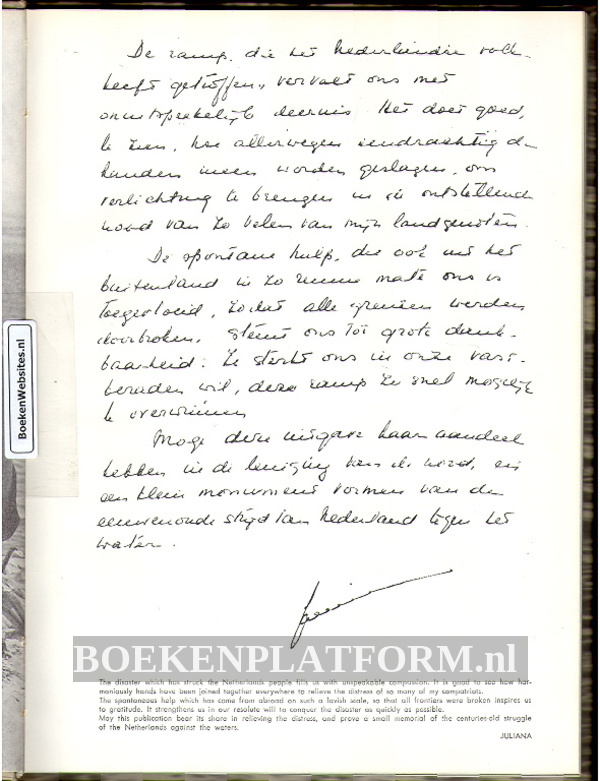 De ramp, die het Nederlandse volk
heeft getroffen, vervult ons met
onuitsprekelijk deernis. Het doet goed,
te zien, hoe allerwegen eendrachtig de
handen ineen worden geslagen, om
verlichting te brengen in de ontstellende
nood van zo velen van mijn landgenoten.
De spontane hulp, die ook uit het
buitenland in zo ruime mate ons is
toegevloeid, zodat alle grenzen werden
doorbroken, stemt ons tot grote dank-
baarheid. Ze sterkt ons in onze vast-
beraden wil, deze ramp zo snel mogelijk
te overwinnen
Moge deze uitgave haar aandeel
hebben in de leniging van de nood, en
een klein monument vormen van de
eeuwenoude strijd van Nederland tegen het
water.
BoekenWebsites.nl
BOEKENPLATFORM.nl
The disaster which has struck the Netherlands people fills us with unspeakable compassion. It is good to see how har-
moniously hands have been joined together everywhere to relieve the distress of so many of my compatriots.
The spontaneous help which has come from abroad on such a lavish scale, so that all frontiers were broken inspires us
to gratitude. It strengthens us in our resolute will to conquer the disaster as quickly as possible.
May this publication bear its share in relieving the distress, and prove a small memorial of the centuries-old struggle
of the Netherlands against the waters.
JULIANA